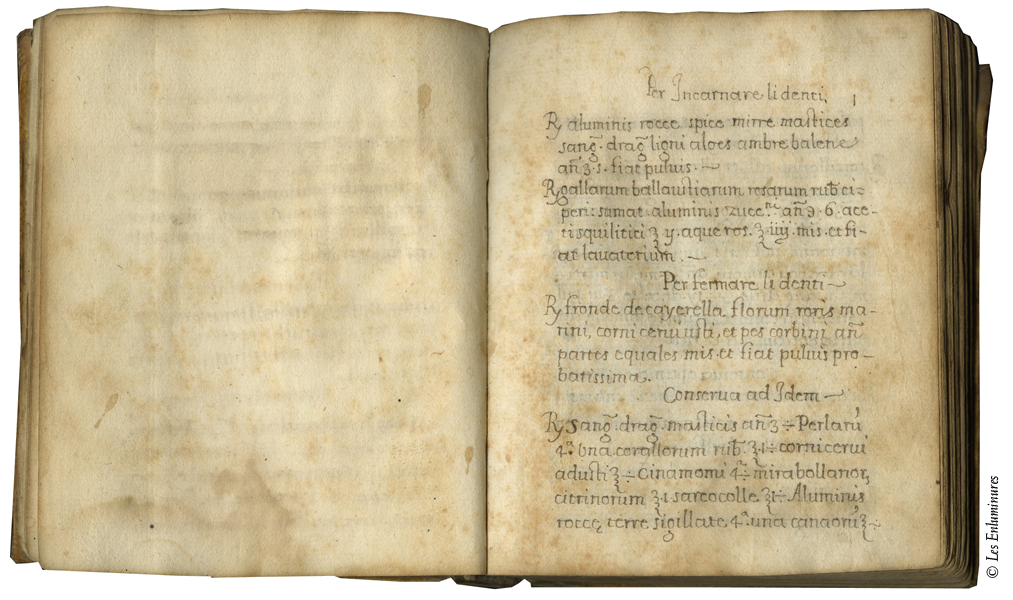 Per Incarnare li denti. 1
℞ aluminis rocce spice mirre mastices
sang̃. drag̃. ligni aloes ambre balene
añ ʒ. s. fiat puluis.
℞ gallarum ballaustiarum rosarum rub̃ ci=
peri: sumat. aluminis zucc. añ ℈. 6. ace-
ti squilitici ℥ y. aque ros. ℥. iiij. mis. et fi-
at lauatorium.
Per fermare li denti
℞ fronde de cayerella florum roris ma-
rini, corni ceruiusti, et pes corbini añ
partes equales mis. et fiat puluis pro-
batissima.
Conserua ad Idem
℞ Sang̃. drag̃. masticis añ ʒ ÷ Perlarũ
4ª. una corallorum rub̃. ʒ.1 ÷ corni cerui
adusti ʒ ÷ Cinamomi 4ª ÷ mirabollanor,
citrinorum ʒ 1 sarcocolle ʒ1 ÷ Aluminis
roccę, terre sigillate 4ª. una
© Les Enluminures